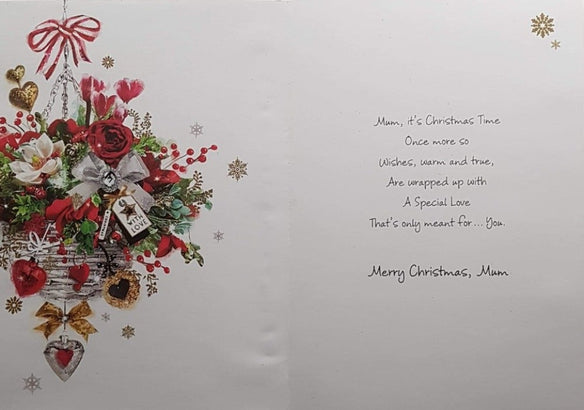 WITH
LOVE
Mum, it's Christmas Time
Once more so
Wishes, warm and true,
Are wrapped up with
A Special Love
That's only meant for... You.
Merry Christmas, Mum